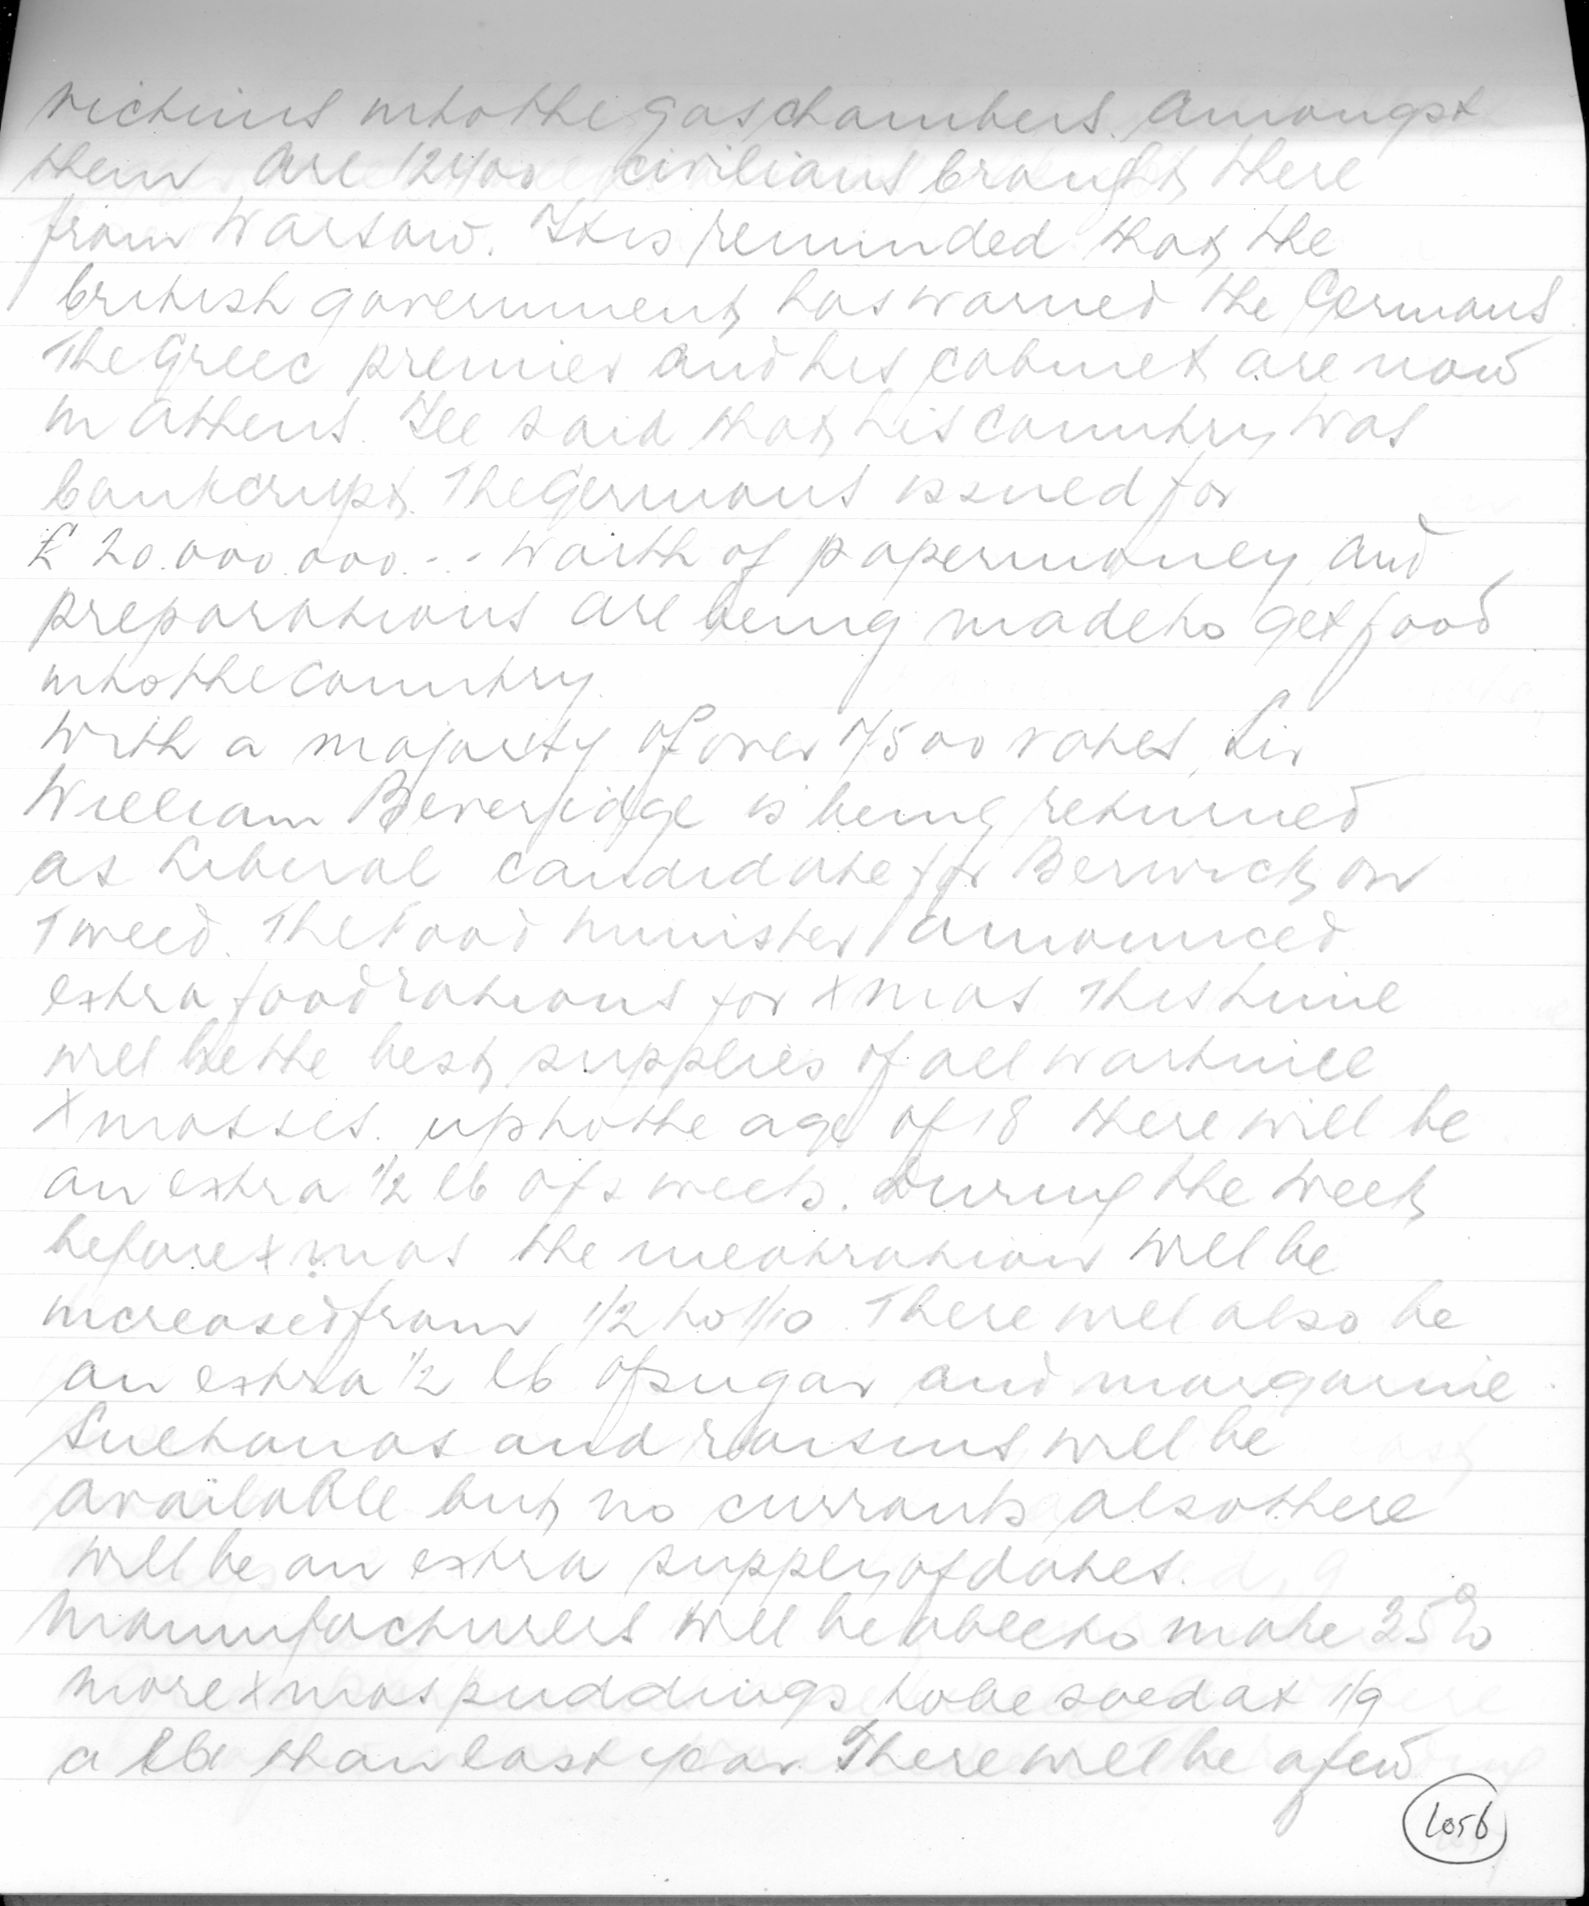 victims into the gaschambers. Amongst
them are 12400 civilians brought there
from Warsaw. It is reminded that the
british government has warned the Germans.
The Greec premier and his cabinet are now
in Athens. He said that his country was
bankcrupt. The Germans issued for
£ 20.000.000.-- worth of papermoney and
preparations are being made to get food
into the country.
With a majority of over 7500 votes Sir
William Beveridge is being returned
as Liberal candidate for Berwick on
Tweed. The Food Minister announced
extra food rations for Xmas. This time
will be the best supplies of all wartime
Xmasses. up to the age of 18 there will be
an extra 1/2 lb of sweets. During the week
before Xmas the meatration will be
increased from 1/2 to 1/10. There will also be
an extra 1/2 lb of sugar and margarine.
Sultanas and raisins will be
available but no currants also there
will be an extra supply of dates.
Manufacturers will be able to make 25%
more Xmas puddings to be sold at 1/9
a lb than last year. There will be a few
1056